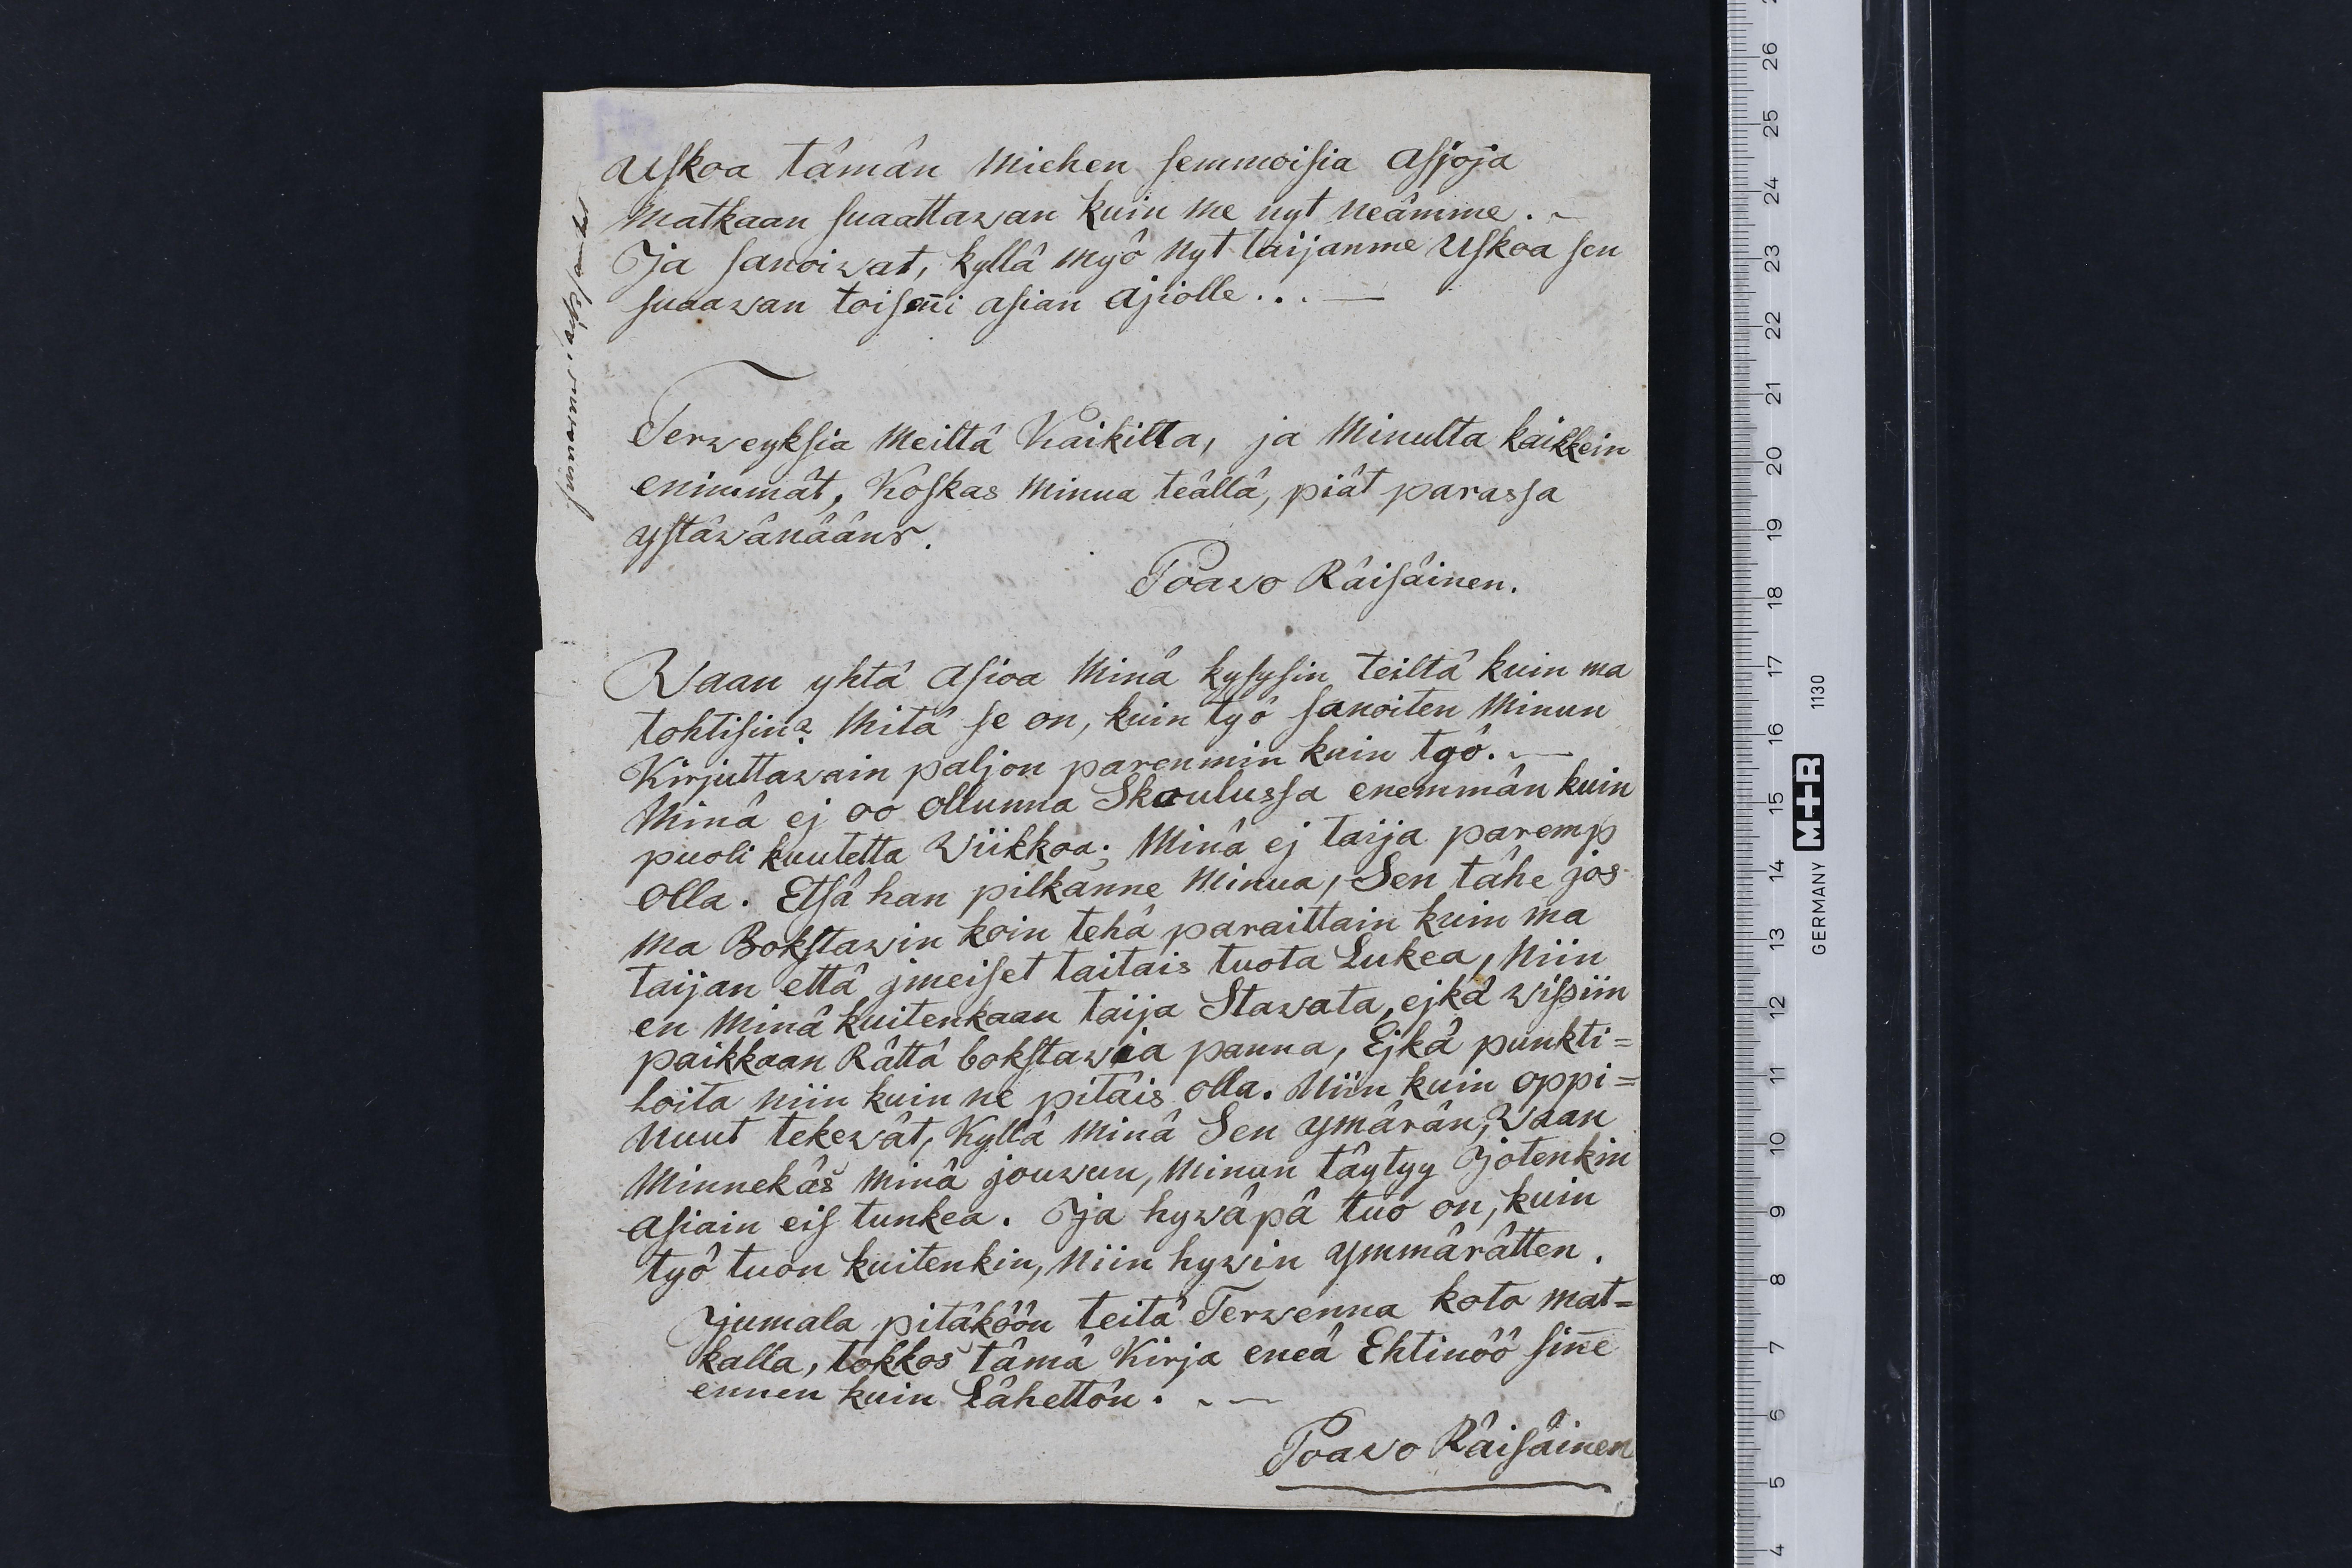 Uskoa tämän Miehen semmoisia Asjoja
Matkaan suaattawan kuin me nyt neämme. ~
Ja sanoiwat, kyllä myö Nyt taijamme Uskoa sen
suaawan toisen̄i asian Ajiolle... —
Terweyksia Meiltä Kaikilta, ja Minulta kaikkein
enimmät, Koskas Minua teällä, piät parassa
ystäwänääns.
Poawo Räisäinen.
Waan yhtä Asioa Minä kysysin teiltä kuin ma
tohtisin? Mitä se on, kuin työ sanoiten Minun
Kirjuttawain paljon paremmin kuin työ. ~—
Minä ej oo Ollunna Skoulussa enemmän kuin
puoli kuutetta Wiikkoa; Minä ej taija paremp
Olla. Elsä han pilkanne Minua, Sen tähe jos
Ma Bokstawin koin tehä paraittain kuin ma
taijan että jmeiset taitais tuota Lukea, Niin
en Minä kuitenkaan taija Stawata, ejkä wissiin
paikkaan Rättä bokstawia panna, Ejkä punkti=
loita niin kuin ne pitäis olla. Niin kuin oppi=
Nuut tekewät, Kyllä Minä Sen ymärän, Waan
Minnekäs Minä jouwun, Minun täytyy Jotenkin
Asiain eis tunkea. Ja hywäpä tuo on, kuin
työ tuon kuitenkin, Niin hywin Ymmärätten.
Jumala pitäköön teitä Terwenna koto mat=
kalla, tokkos tämä Kirja eneä Ehtinöö sin̄e
ennen kuin Lähettön. ~—
Poawo Räisäinen
17
16
15
14
13
12
11
10
9
8
7
6
5
4
26
25
24
23
22
21
20
19
18
GERMANY M+R 1130